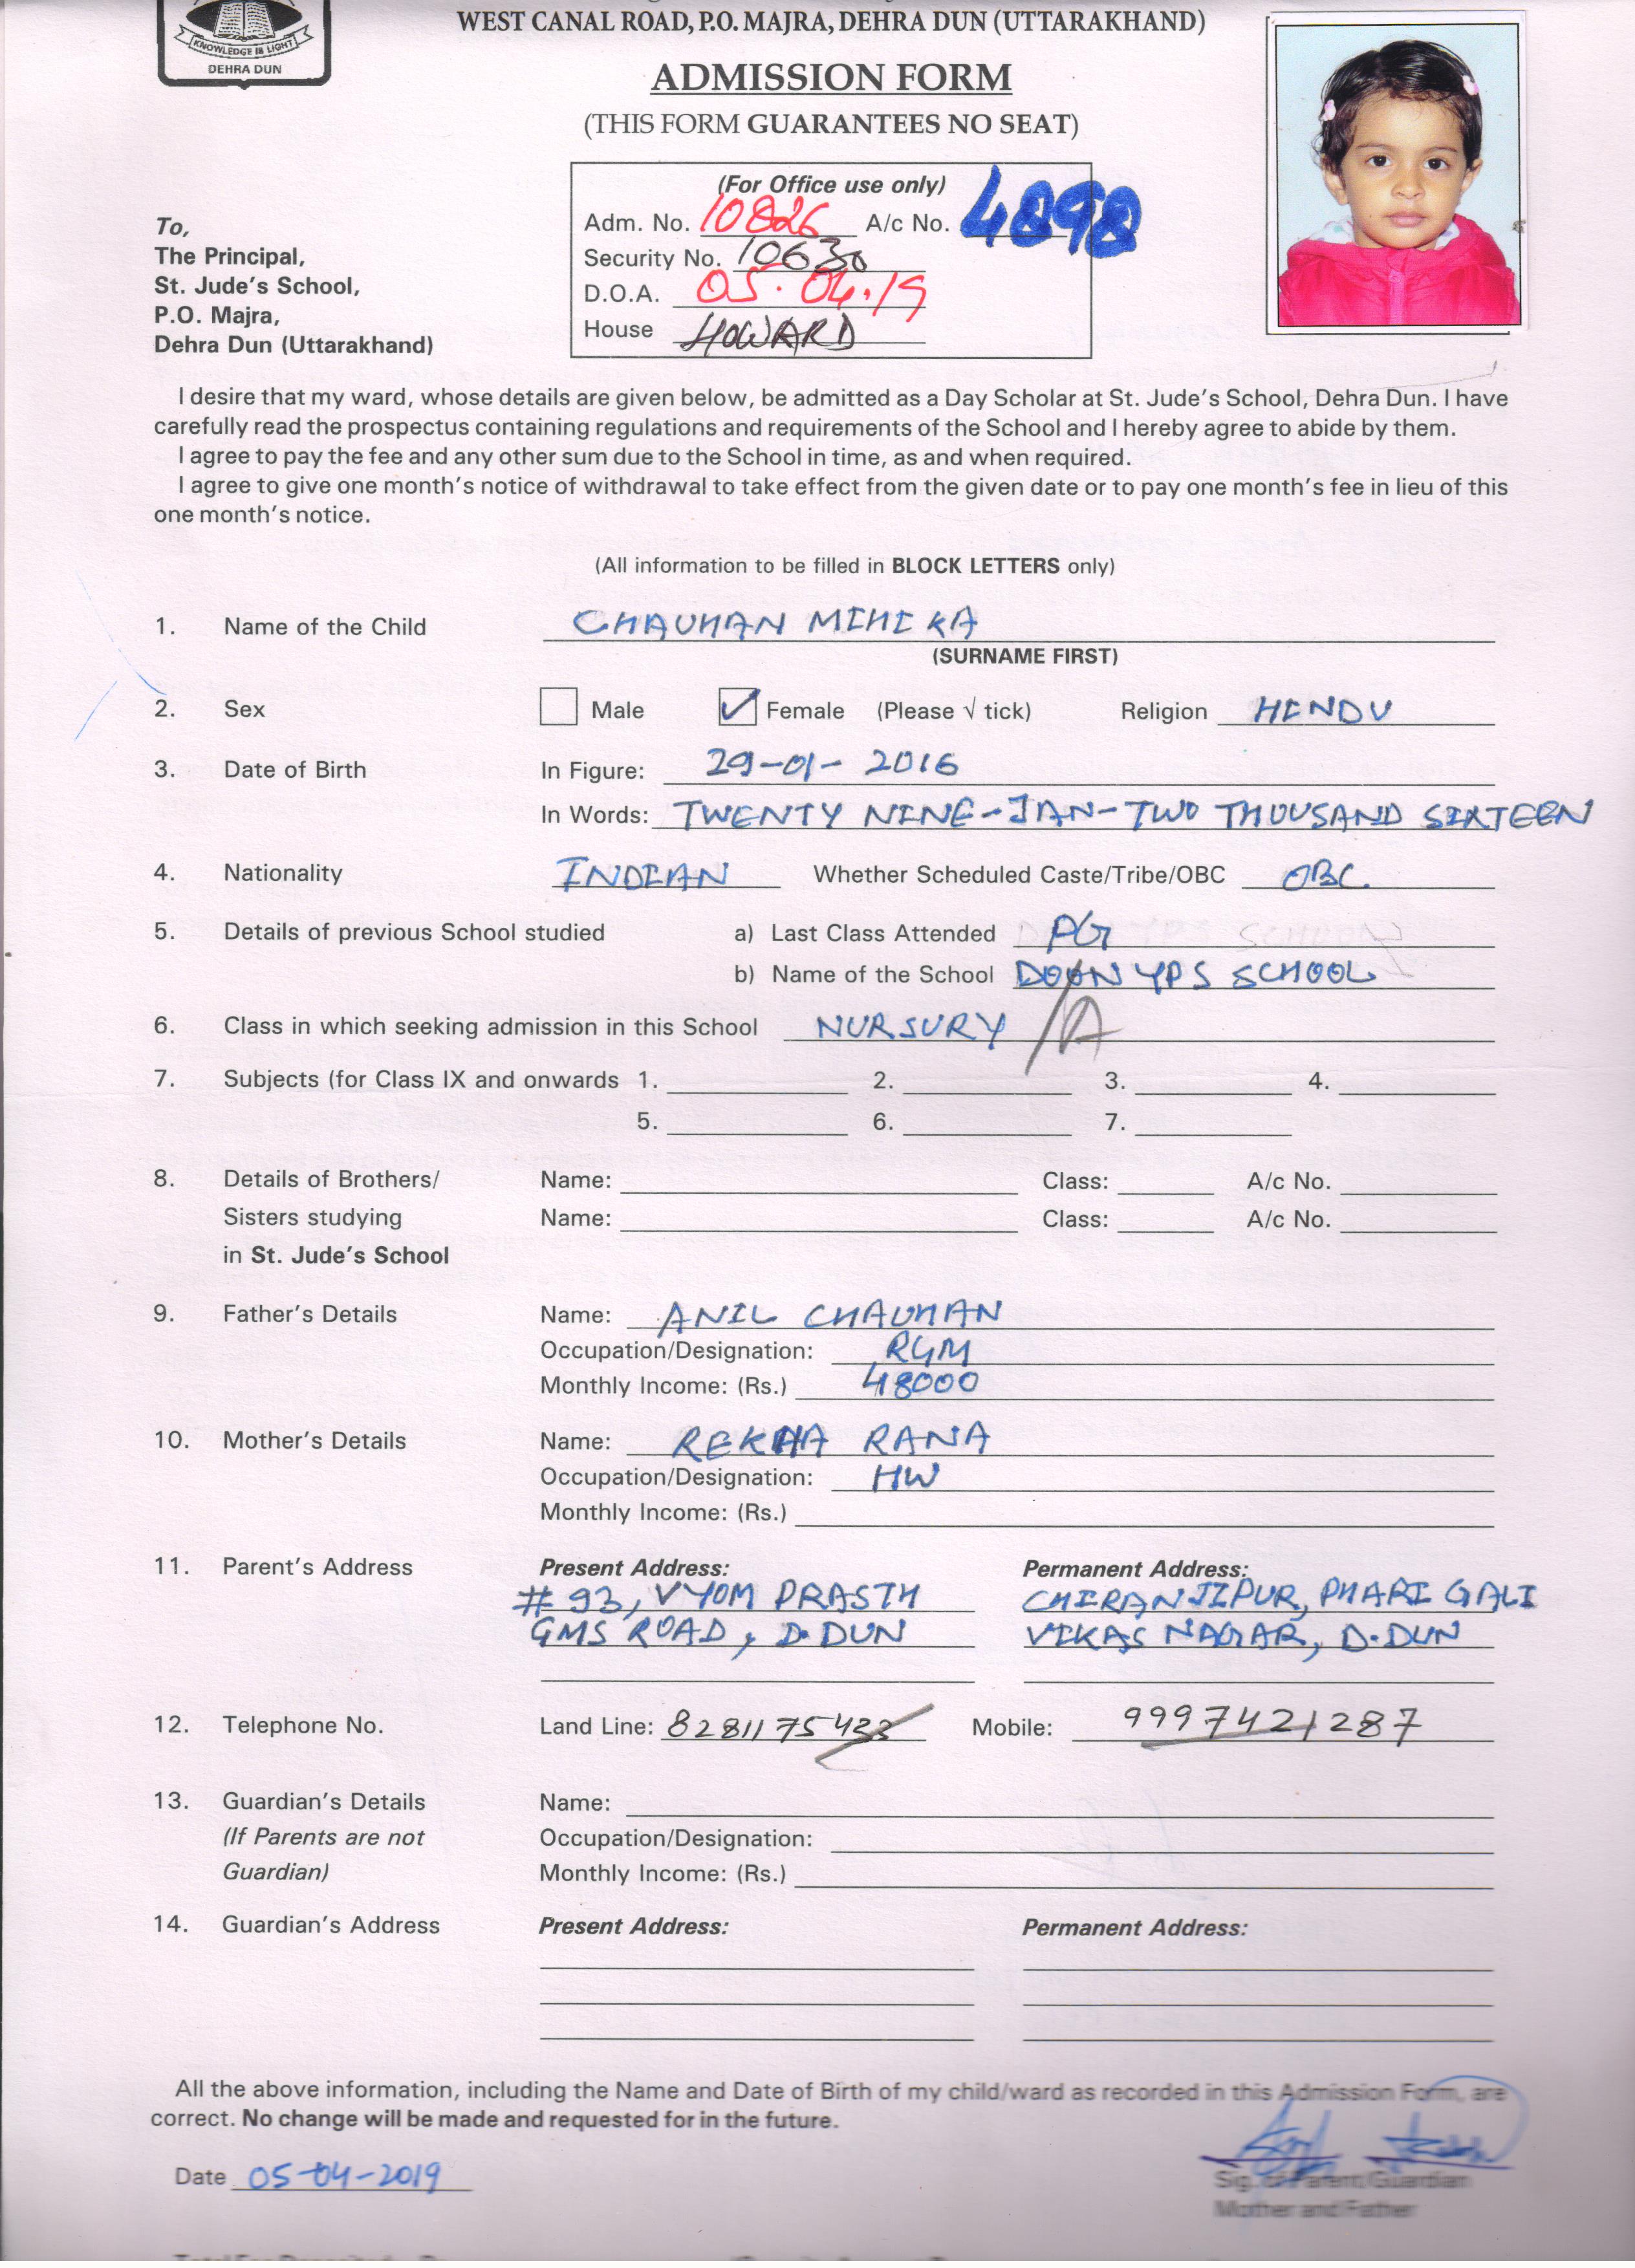 KNOWLEDGE IS LIGHT
DEHRA DUN
WEST CANAL ROAD, P.O. MAJRA, DEHRA DUN (UTTARAKHAND)
ADMISSION FORM
(THIS FORM GUARANTEES NO SEAT)
(For Office use only)
Adm. No. 10826 A/c No. 4898
Security No. 10630
D.O.A. 05.04.19
House HOWARD
To,
The Principal,
St. Jude's School,
P.O. Majra,
Dehra Dun (Uttarakhand)
I desire that my ward, whose details are given below, be admitted as a Day Scholar at St. Jude's School, Dehra Dun. I have
carefully read the prospectus containing regulations and requirements of the School and I hereby agree to abide by them.
I agree to pay the fee and any other sum due to the School in time, as and when required.
I agree to give one month's notice of withdrawal to take effect from the given date or to pay one month's fee in lieu of this
one month's notice.
(All information to be filled in BLOCK LETTERS only)
1. Name of the Child CHAUHAN MIHIKA
(SURNAME FIRST)
2. Sex Male ✓ Female (Please √ tick) Religion HINDU
3. Date of Birth In Figure: 29-01-2016
In Words: TWENTY NINE-JAN-TWO THOUSAND SIXTEEN
4. Nationality INDIAN Whether Scheduled Caste/Tribe/OBC OBC
5. Details of previous School studied a) Last Class Attended PG
b) Name of the School DOON YPS SCHOOL
6. Class in which seeking admission in this School NURSURY /A
7. Subjects (for Class IX and onwards 1. 2. 3. 4.
5. 6. 7.
8. Details of Brothers/ Name: Class: A/c No.
Sisters studying Name: Class: A/c No.
in St. Jude's School
9. Father's Details Name: ANIL CHAUHAN
Occupation/Designation: RGM
Monthly Income: (Rs.) 48000
10. Mother's Details Name: REKHA RANA
Occupation/Designation: HW
Monthly Income: (Rs.)
11. Parent's Address Present Address: Permanent Address:
# 93, VYOM PRASTH CHIRANJIPUR, PHARI GALI
GMS ROAD, D.DUN VIKAS NAGAR, D.DUN
12. Telephone No. Land Line: 8281175433 Mobile: 9997421287
13. Guardian's Details Name:
(If Parents are not Occupation/Designation:
Guardian) Monthly Income: (Rs.)
14. Guardian's Address Present Address: Permanent Address:
All the above information, including the Name and Date of Birth of my child/ward as recorded in this Admission Form, are
correct. No change will be made and requested for in the future.
Date 05-04-2019
Sig. of Parent/Guardian
Mother and Father